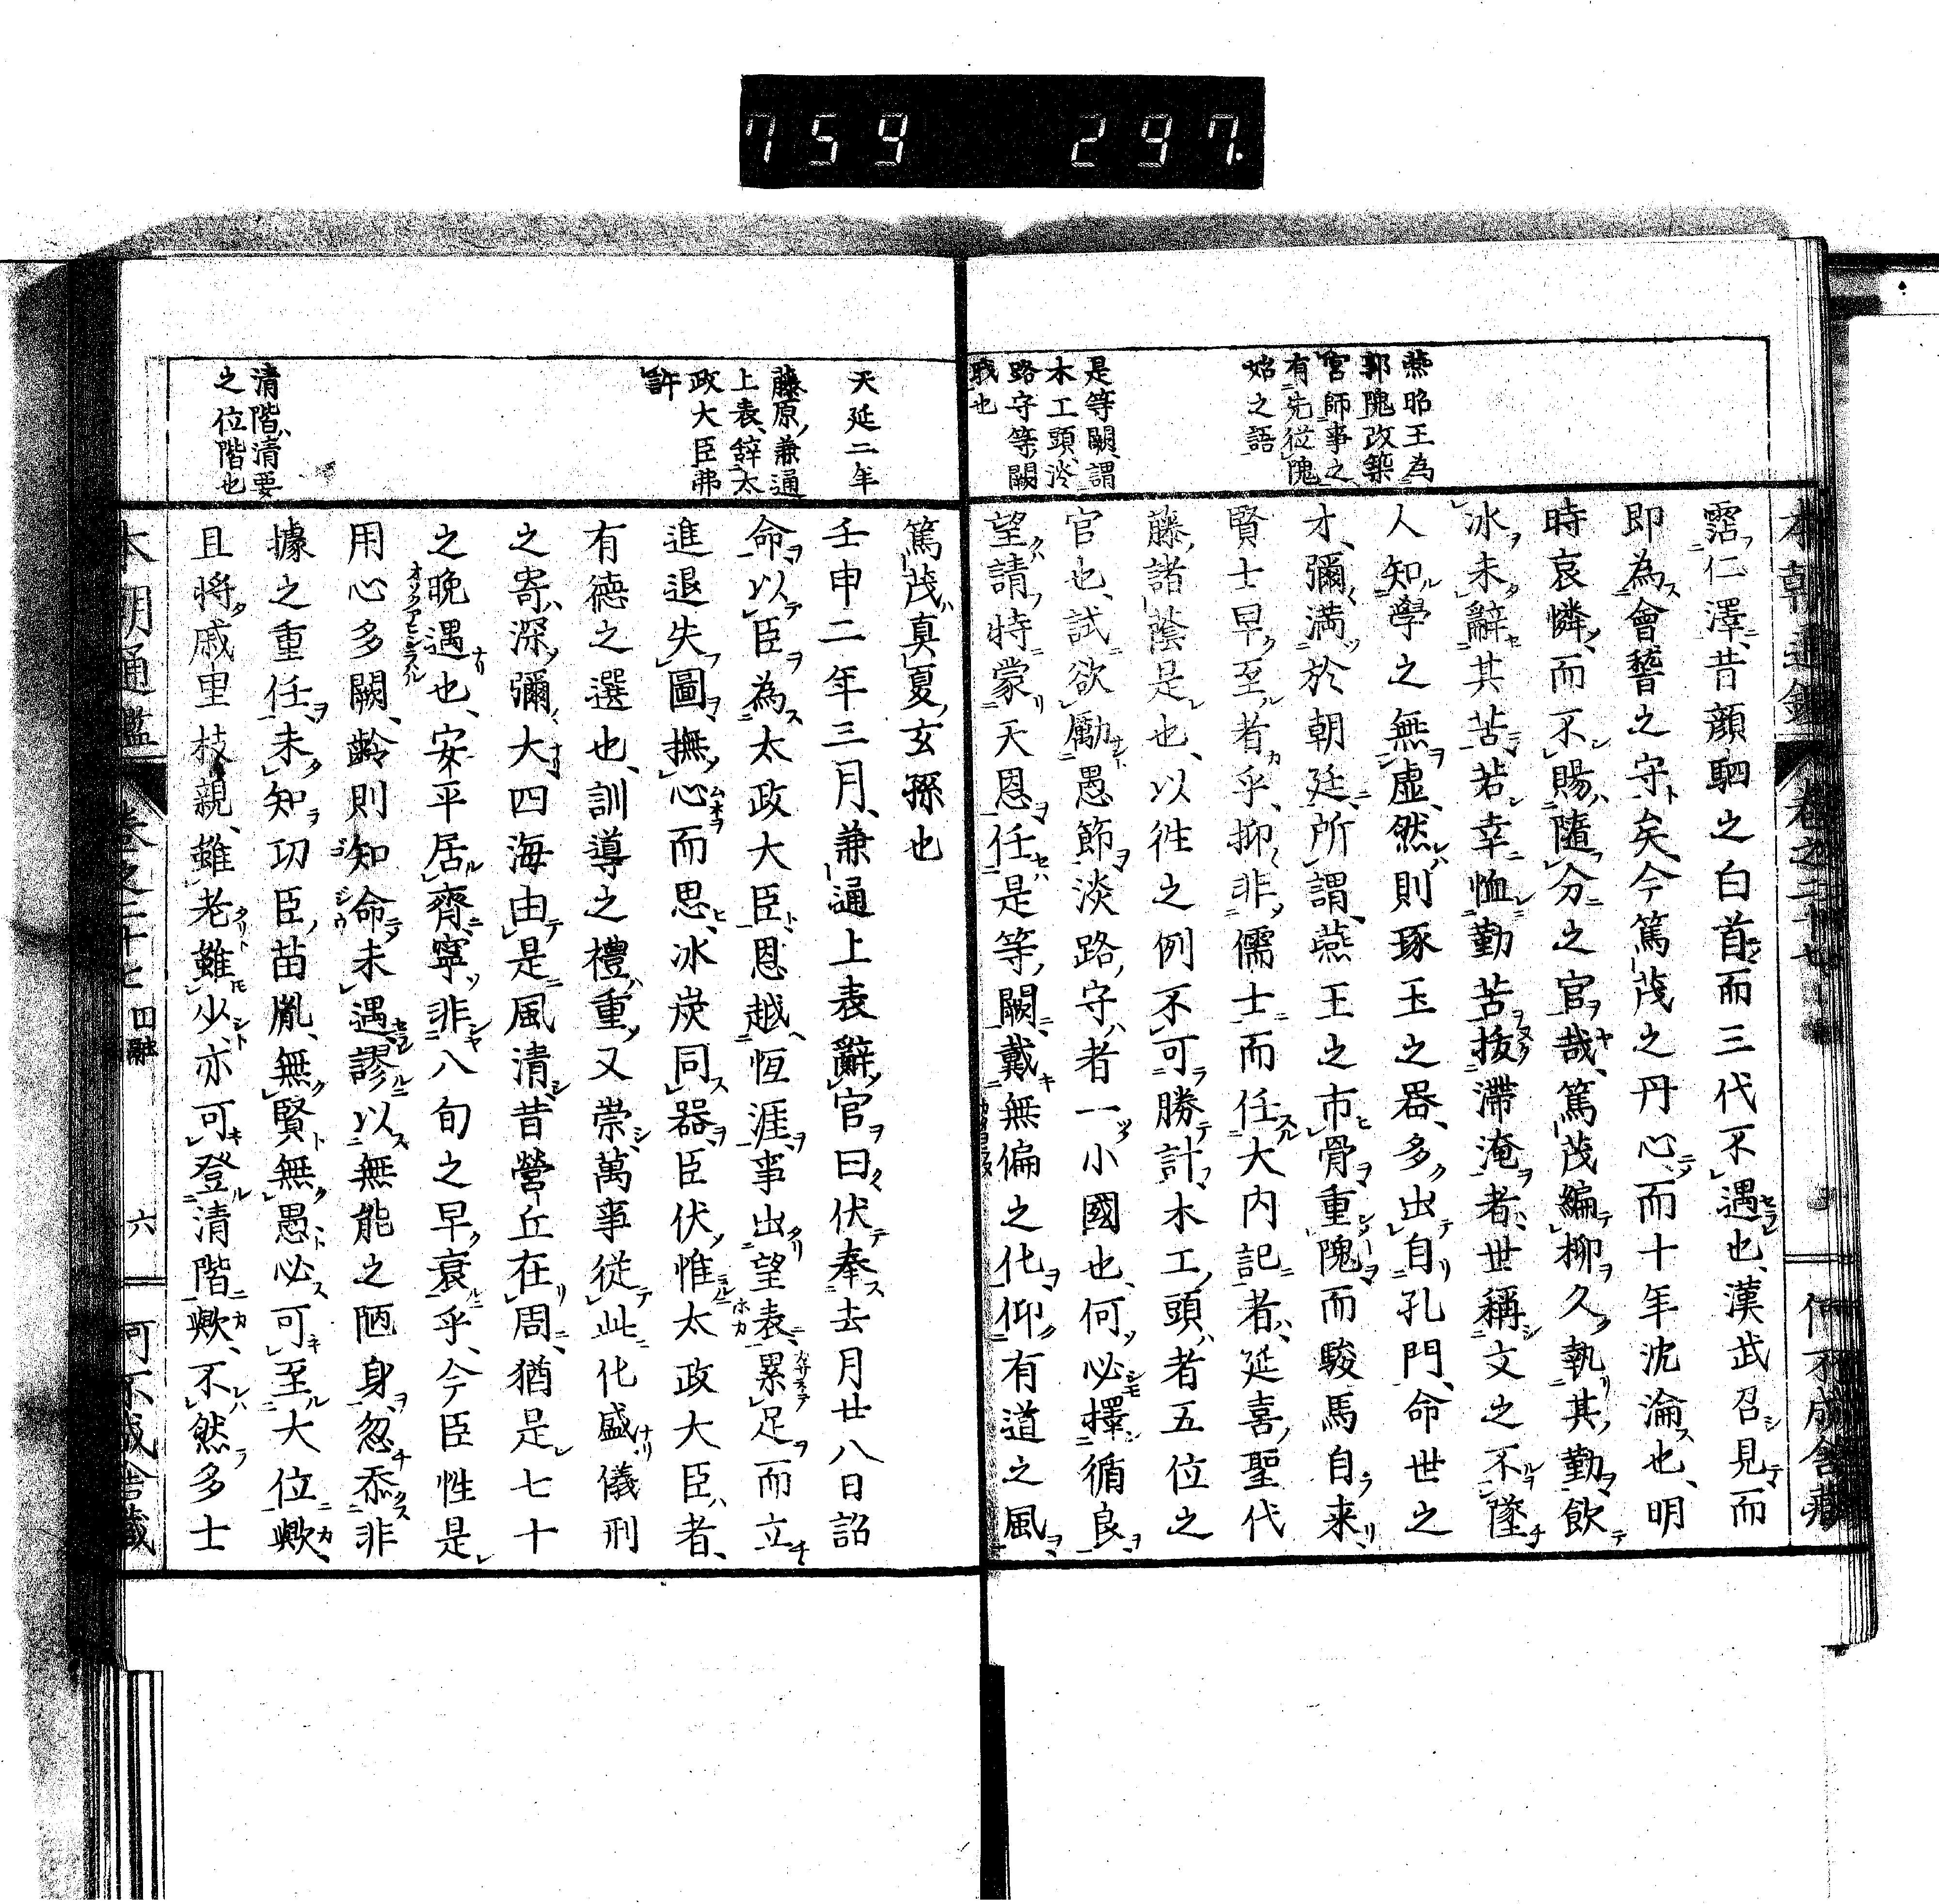 759 297.
燕昭王為
郭隗改築
宮師事之
有先従隗
始之語
是等闕謂
木工頭淡
路守等闕
職也
霑仁澤昔顔駟之白首而三代不遇也漢武召見而
即為會稽之守矣今篤茂之丹心而十年沈淪也明
時哀憐而不賜隨分之官哉篤茂編柳久執其勤飲
冰未辭其苦若幸恤勤苦抜滯淹者世稱文之不墜
人知學之無虚然則琢玉之器多出自孔門命世之
才彌満於朝廷所謂燕王之市骨重隗而駿馬自来
賢士早至者乎抑非儒士而任大内記者延喜聖代
藤諸蔭是也以徃之例不可勝計木工頭者五位之
官也試欲勵愚節淡路守者一小國也何必擇循良
望請特蒙天恩任是等闕戴無偏之化仰有道之風
篤茂真夏玄孫也
天延二年
藤原兼通
上表辞太
政大臣弗
許
清階清要
之位階也
壬申二年三月兼通上表辭官曰伏奉去月廿八日詔
命以臣為太政大臣恩越恒涯事出望表累足而立
進退失圖撫心而思冰炭同器臣伏惟太政大臣者
有徳之選也訓導之禮重又崇萬事従此化盛儀刑
之寄深彌大四海由是風清昔營丘在周猶是七十
之晩遇也安平居齊寧非八旬之早衰乎今臣性是
用心多闕齢則知命未遇謬以無能之陋身忽忝非
據之重任未知功臣苗胤無賢無愚必可至大位歟
且将戚里枝親雖老雖少亦可登清階歟不然多士
本朝通鑑 巻之三十七 円融 六 何不成舎蔵